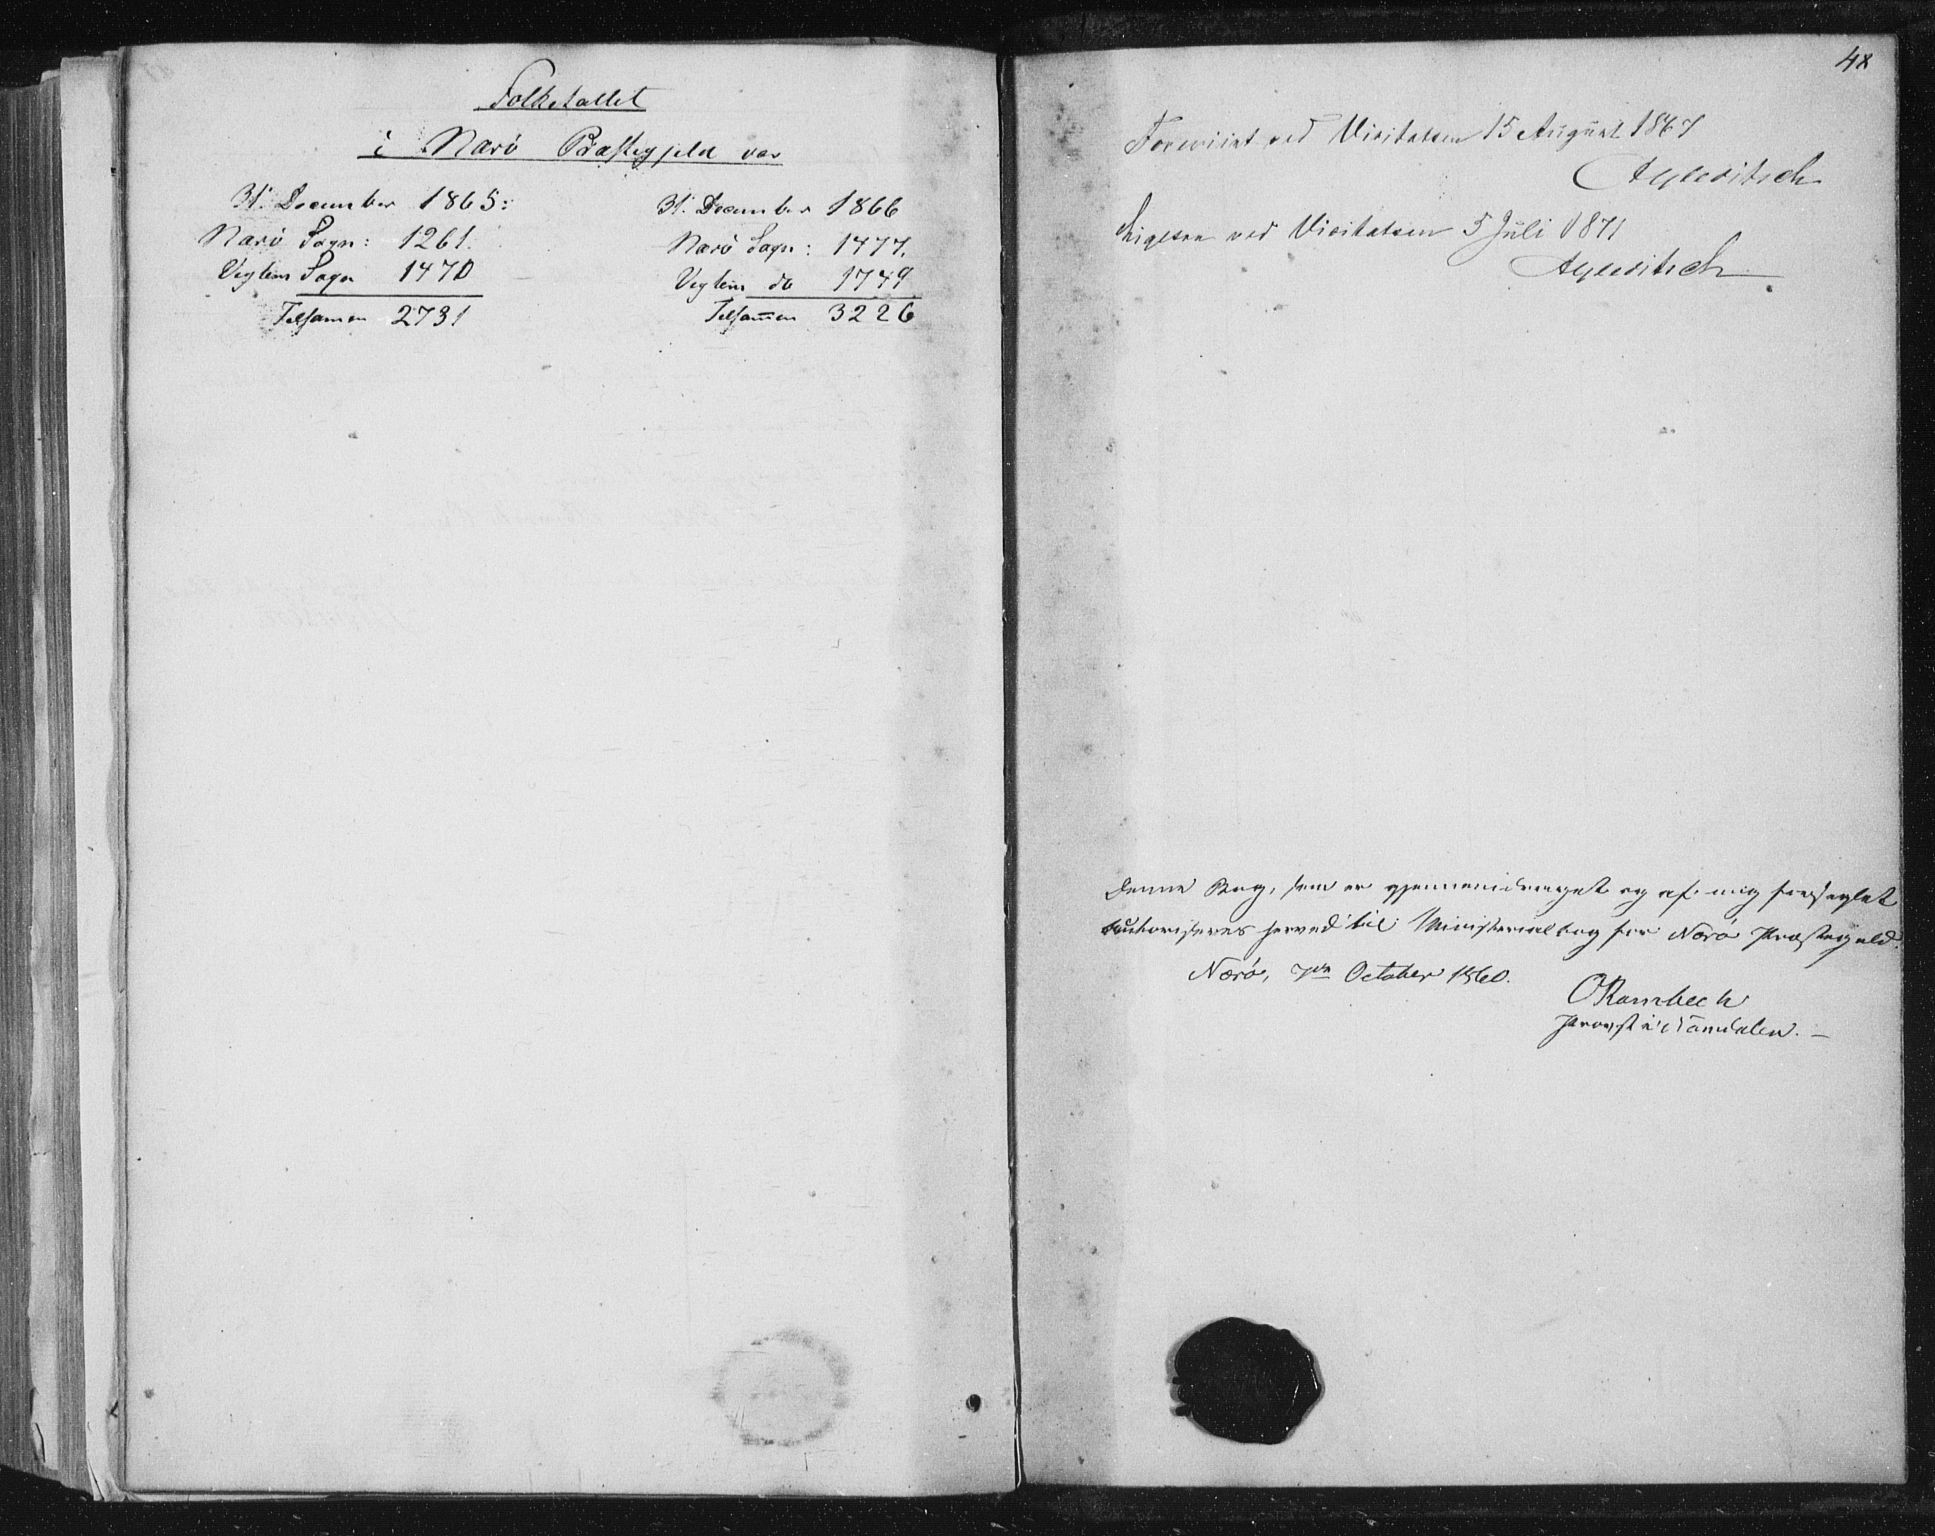 Folketallet
i Nærö Præstegjeld var
31. December 1865:
Nærö Sogn: 1261.
Vegten Sogn 1470
Tilsamen 2731
31. December 1866
Nærö Sogn: 1477.
Vegten do 1749
Tilsam̄en 3226
48
Foreviist ved Visitatsen 15 August 1867
ligesaa ved Visitatsen 5 Juli 1871
Denne Bog, som er gjennemdraget og af mig forseglet
authoriseres herved til Ministerialbog for Nærö Præstegjeld.
Nærö, 7de October 1860.
O Rambech
Provst i Namdalen.